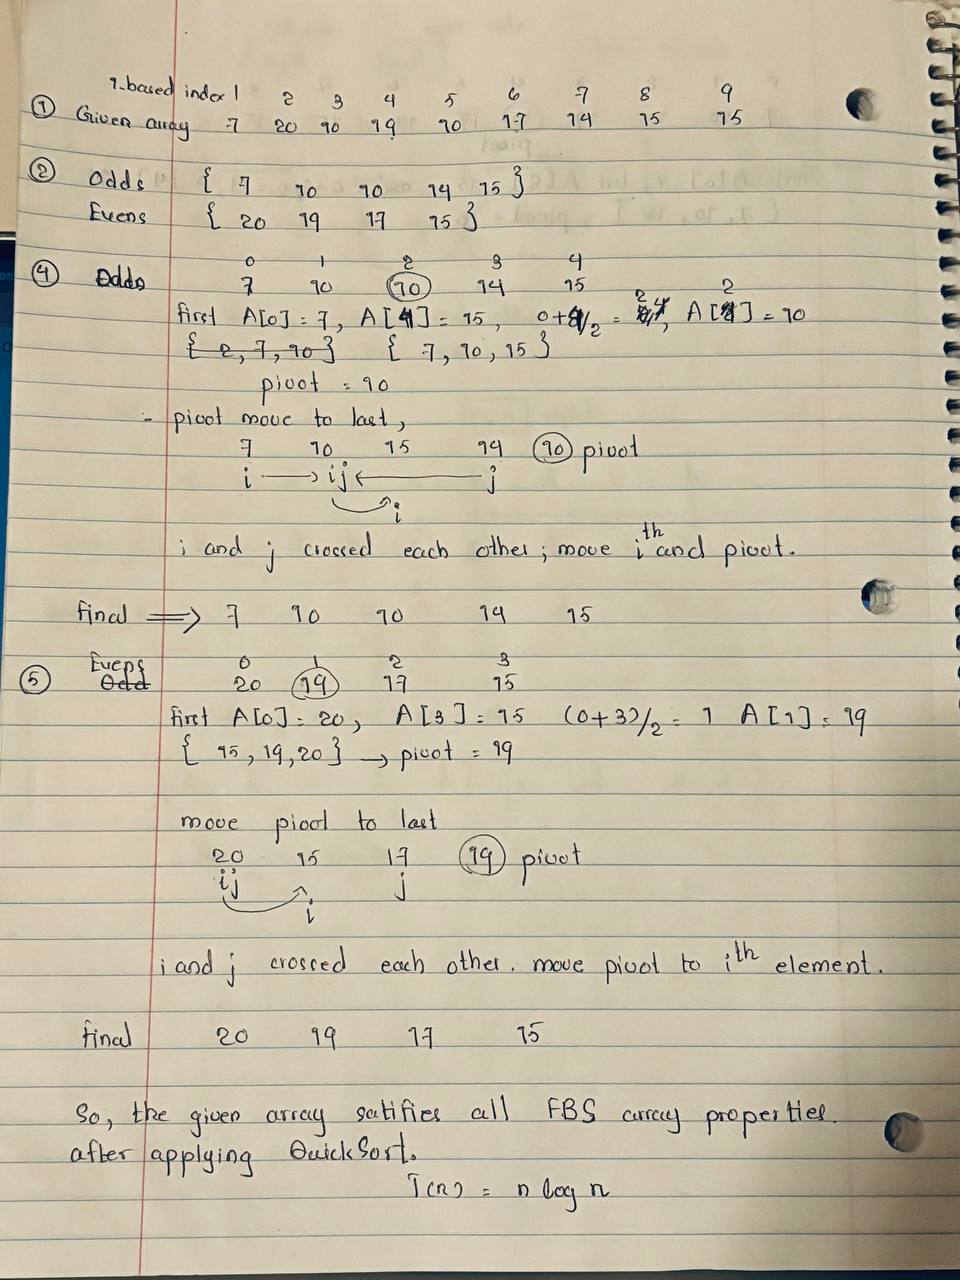 1-based index 1 2 3 4 5 6 7 8 9
① Given array 7 20 10 19 10 17 14 15 15
② Odds { 7 10 10 14 15 }
Evens { 20 19 17 15 }
0 1 2 3 4
④ Odds 7 10 10 14 15
first A[0] = 7, A[4] = 15, 0+4/2 = 2, A[2] = 10
{ 2, 7, 10 } { 7, 10, 15 }
pivot = 10
- pivot move to last,
7 10 15 14 10 pivot
i → ij ← j
i
i and j crossed each other; move ith and pivot.
final ⟹ 7 10 10 14 15
Evens 0 1 2 3
⑤ Odd 20 19 17 15
first A[0] = 20, A[3] = 15 (0+3)/2 = 1 A[1] = 19
{ 15, 19, 20 } → pivot = 19
move pivot to last
20 15 17 19 pivot
ij j
i
i and j crossed each other. move pivot to ith element.
final 20 19 17 15
So, the given array satifies all FBS array properties.
after applying QuickSort.
T(n) = n log n